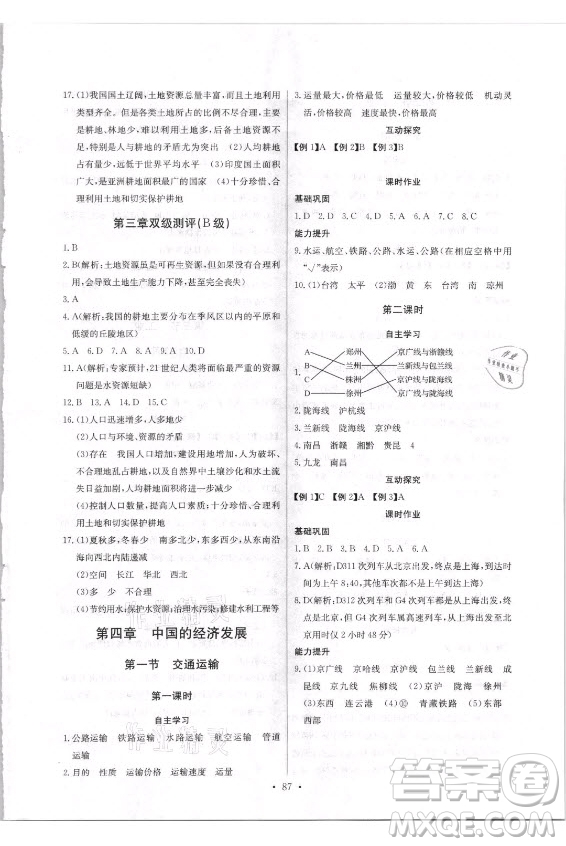 17.(1)我国国土辽阔,土地资源总量丰富 土地利用
类型齐全 (2)各类土地所占的比例不尽合理,主
要是耕地、林地少,难利用土地多,后备土地资源不
足,特别是人与耕地的矛盾尤为突出 (2)人均耕
地占有量少,质量不高 (3)印度国土面积
广大,是亚洲耕地面积最大的国家 (4)十分珍惜、合
理利用土地和切实保护耕地
第三章双级测评(B级)
1.B
2.B(解析:土地资源虽是可再生资源,但若不合理利
用,会导致土地生产能力下降,甚至完全丧失)
3.A
4.A(解析:我国的耕地主要分布在季风区以内的平原和
低缓的丘陵地区)
5.A 6.D 7.A 8.B 9.A 10.A
11.A(解析:专家预计,21世纪人类将面临的最严重资源
问题是水资源短缺)
12.B 13.A 14.D 15.D
16.(1)人口迅速增多,人多地少
(2)人口与环境、资源的矛盾
(3)存在 因为人口增加,建设用地增加,人为破坏、
不合理地乱占耕地,以及中国土壤沙化和水土流
失日益加剧,人均耕地面积进一步减少
(4)控制人口数量,提高人口素质;十分珍惜、合理利
用土地和切实保护耕地
17.(1)夏秋多,冬春少 南多北少,东多西少,从东南沿
海向西北内陆递减
(2)空间 长江 华北 西北
(3)多 少 不合理
(4)节约用水;保护水资源;治理水污染;修建水利工程等
第四章 中国的经济发展
第一节 交通运输
第一课时
自主学习
1.公路运输 铁路运输 水路运输 航空运输 管道
运输
2.目的 性质 运输价格 运输速度 运量
3.运量最大,价格最低 运量较大,价格较低 机动灵
活,价格较高 速度最快,价格最高
互动探究
【例1】A 【例2】B 【例3】B
课时作业
基础巩固
1.D 2.D 3.A 4.D 5.A 6.D 7.D 8.C
能力提升
9.水运、航空、铁路、公路、公路(在相应空格内用
“√”表示)
10.(1)台湾 太平 (2)渤 黄 东 台湾 南 琼州
第二课时
自主学习
1.
A 郑州 京广线与浙赣线
B 兰州 兰新线与包兰线
C 株洲 京广线与陇海线
D 徐州 京沪线与陇海线
2.陇海线 沪杭线
3.兰新线 陇海线 京沪线
4.南昌 浙赣 湘黔 贵昆 4
5.九龙 南昌
互动探究
【例1】C 【例2】A 【例3】A
课时作业
基础巩固
1.B 2.D 3.D 4.A 5.B 6.A
7.A(解析:D311次列车从北京出发,终点是上海,到达时
间为上午8:40。)
8.B(解析:D312次列车和G4次列车都是从上海出发,
终点是北京,但G4次列车属高速列车,从上海到北
京用时仅2小时48分)
能力提升
9.(1)京广线 京哈线 京沪线 包兰线 兰新线
京九线 焦柳线 (2)京 沪 兰州 上海 徐州
(3)东西 连云港 (4)⑬ 青藏铁路 (5)东部
西部
87
答案圈
MXQE.COM